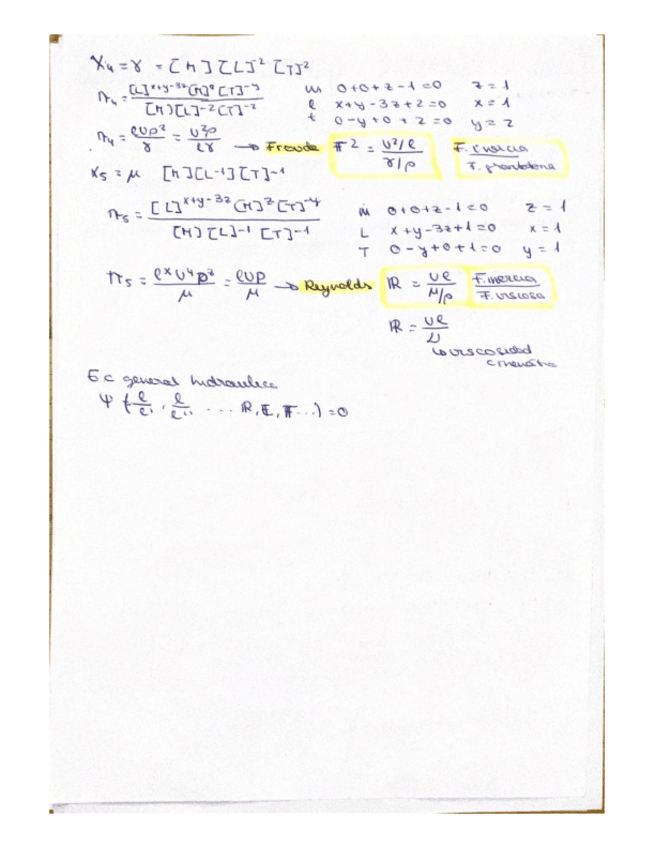 X₄ = γ = [M][L]²[T]²
π₄ = [L]^(x+y-3z) [M]^z [T]^-y / [M][L]^-2[T]^-2   m 0+0+z-1=0 z=1
l x+y-3z+2=0 x=1
t 0-y+0+2=0 y=2
π₄ = lvρ²/γ = v²ρ/lγ → Froude F² = (v²/l)/(γ/ρ) F. inercia / F.
X₅ = μ [M][L-1][T]-1
π₅ = [L]^(x+y-3z) [M]^z [T]^-y / [M][L]-1 [T]-1   M 0+0+z-1=0 z=1
L x+y-3z+1=0 x=1
T 0-y+0+1=0 y=1
π₅ = l^x v^y ρ^z / μ = lvρ/μ → Reynolds R = vl/(μ/ρ) F.inercia / F.viscosa
R = vl/ν
↳ viscosidad
cinemática
Ec general hidraulica
Ψ (l/l', l/l'', ... R, E, F...) = 0